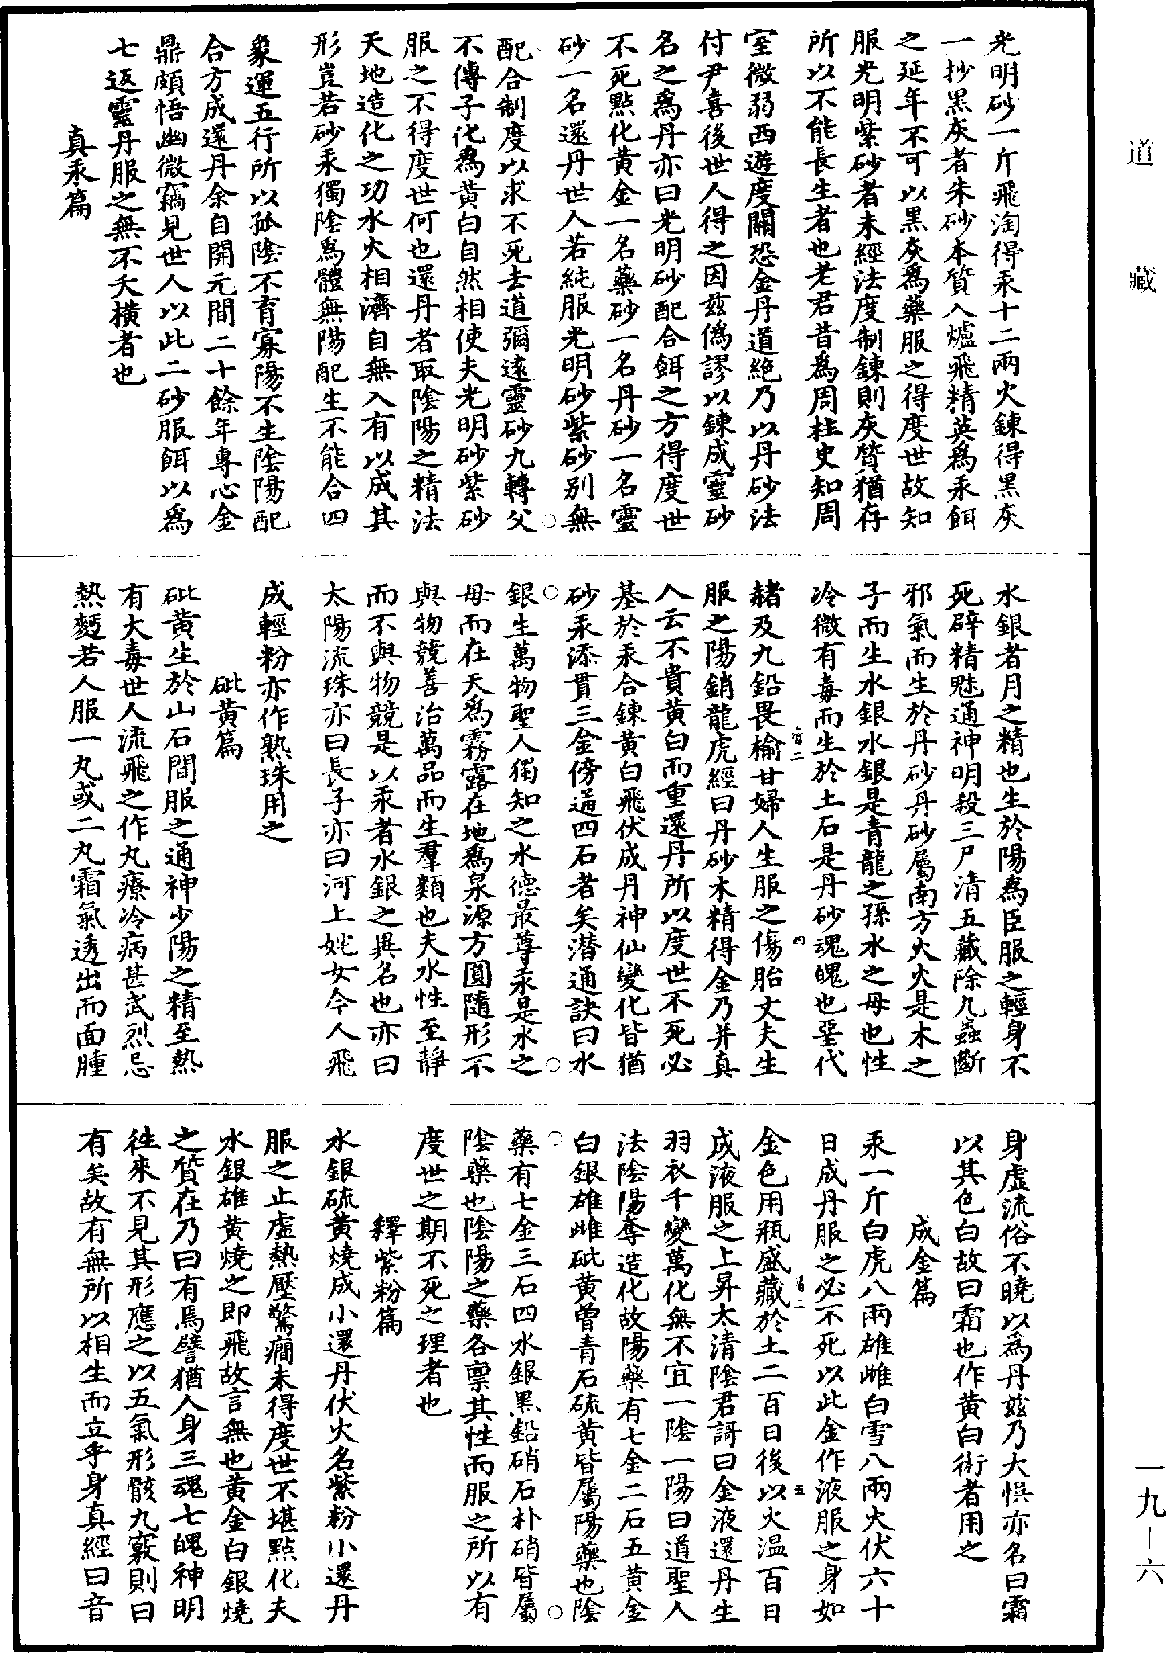 道藏
光明砂一斤飛淘得汞十二兩火鍊得黑灰
一抄黑灰者朱砂本質入爐飛精英為汞餌
之延年不可以黑灰為藥服之得度世故知
服光明紫砂者未經法度制鍊則灰質猶存
所以不能長生者也老君昔為周柱史知周
室微弱西遊度關恐金丹道絶乃以丹砂法
付尹喜後世人得之因茲僞謬以鍊成靈砂
名之為丹亦曰光明砂配合餌之方得度世
不死點化黃金一名藥砂一名丹砂一名靈
砂一名還丹世人若純服光明砂紫砂別無
配合制度以求不死去道彌遠靈砂九轉父
不傳子化為黃白自然相使夫光明砂紫砂
服之不得度世何也還丹者取陰陽之精法
天地造化之功水火相濟自無入有以成其
形豈若砂汞獨陰為體無陽配生不能合四
象運五行所以孤陰不育寡陽不生陰陽配
合方成還丹余自開元間二十餘年專心金
鼎頗悟幽微竊見世人以此二砂服餌以為
七返靈丹服之無不夭橫者也
真汞篇
水銀者月之精也生於陽為臣服之輕身不
死辟精魅通神明殺三尸清五藏除九蟲斷
邪氣而生於丹砂丹砂屬南方火火是木之
子而生水銀水銀是青龍之孫水之母也性
冷微有毒而生於土石是丹砂魂魄也堊代
赭及九鉛畏榆甘婦人生服之傷胎丈夫生
服之陽銷龍虎經曰丹砂木精得金乃并真
人云不貴黃白而重還丹所以度世不死必
基於汞合鍊黃白飛伏成丹神仙變化皆猶
砂汞添貫三金傍通四石者矣潛通訣曰水
銀生萬物聖人獨知之水德最尊汞是水之
母而在天為霧露在地為泉源方圓隨形不
與物競善治萬品而生羣類也夫水性至靜
而不與物競是以汞者水銀之異名也亦曰
太陽流珠亦曰長子亦曰河上姹女今人飛
成輕粉亦作熟珠用之
砒黃篇
砒黃生於山石間服之通神少陽之精至熱
有大毒世人流飛之作丸療冷病甚武烈忌
熱麵若人服一丸或二丸霜氣透出而面腫
身虛流俗不曉以為丹茲乃大悞亦名曰霜
以其色白故曰霜也作黃白術者用之
成金篇
汞一斤白虎八兩雄雌白雪八兩火伏六十
日成丹服之必不死以此金作液服之身如
金色用瓶盛藏於土二百日後以火温百日
成液服之上昇太清陰君謌曰金液還丹生
羽衣千變萬化無不宜一陰一陽曰道聖人
法陰陽奪造化故陽藥有七金二石五黃金
白銀雄雌砒黃曾青石硫黃皆屬陽藥也陰
藥有七金三石四水銀黑鉛硝石朴硝皆屬
陰藥也陰陽之藥各禀其性而服之所以有
度世之期不死之理者也
釋紫粉篇
水銀硫黃燒成小還丹伏火名紫粉小還丹
服之止虛熱壓驚癇未得度世不堪點化夫
水銀雄黃燒之即飛故言無也黃金白銀燒
之質在乃曰有焉譬猶人身三魂七魄神明
往來不見其形應之以五氣形骸九竅則曰
有矣故有無所以相生而立乎身真經曰音
一九－六